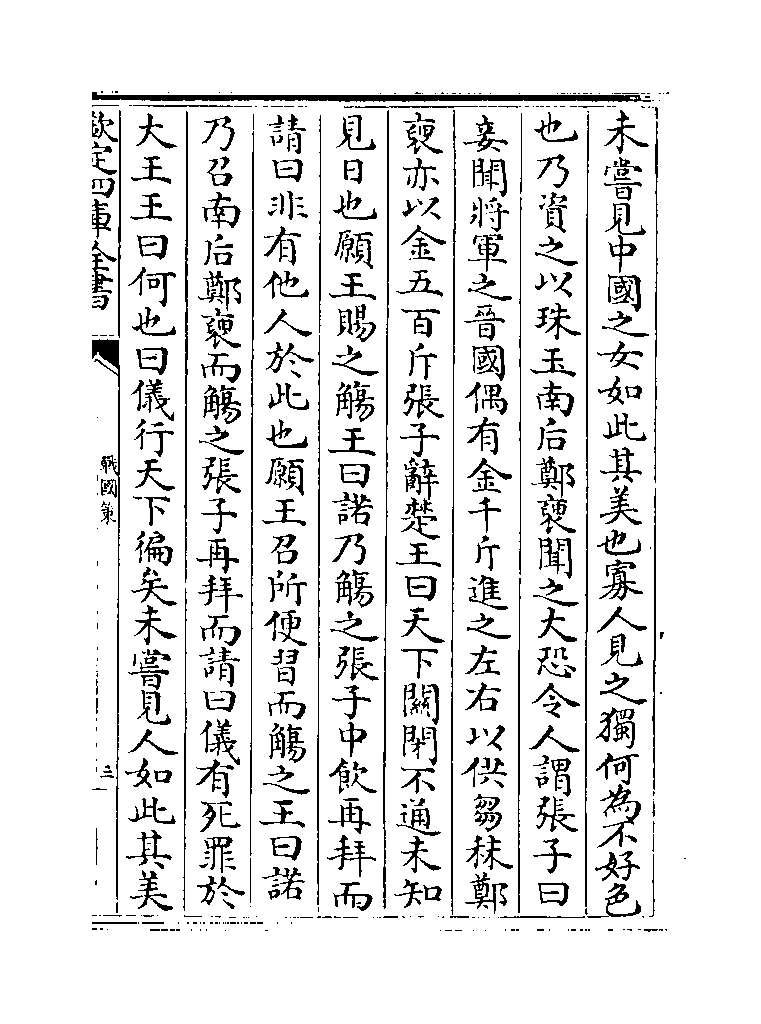 未嘗見中國之女如此其美也寡人見之獨何為不好色
也乃資之以珠玉南后鄭褏聞之大恐令人謂張子曰
妾聞將軍之晉國偶有金千斤進之左右以供芻秣鄭
褏亦以金五百斤張子辭楚王曰天下關閉不通未知
見日也願王賜之觴王曰諾乃觴之張子中飲再拜而
請曰非有他人於此也願王召所便習而觴之王曰諾
乃召南后鄭褏而觴之張子再拜而請曰儀有死罪於
大王王曰何也曰儀行天下徧矣未嘗見人如此其美
欽定四庫全書
戰國策
三